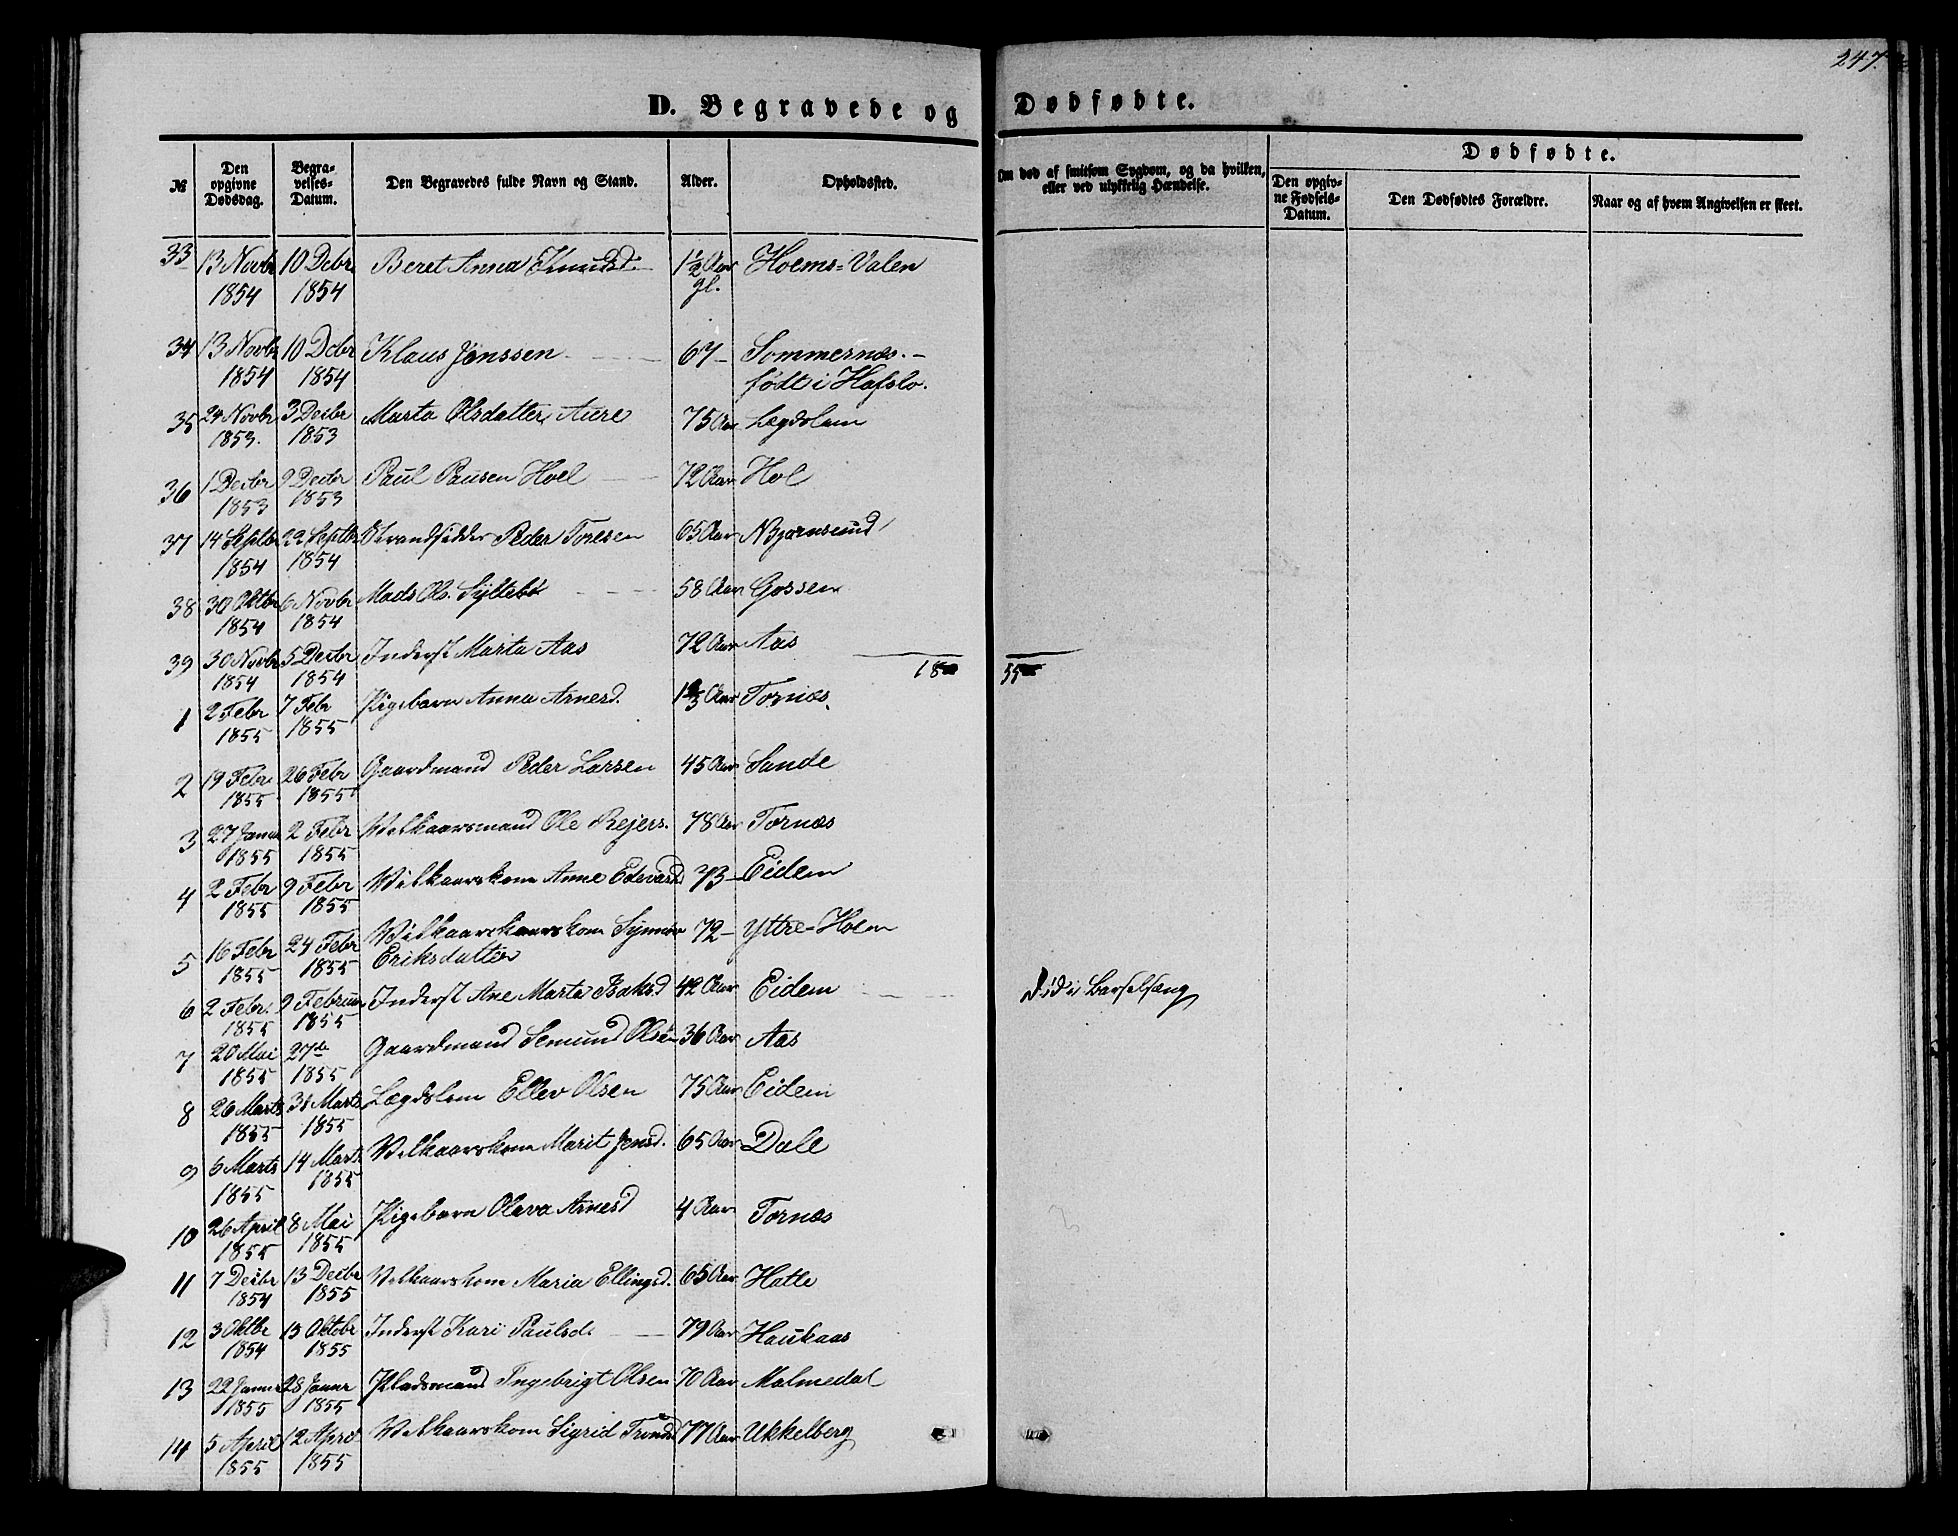 247.
D. Begravede og Dødfødte.
№
Den opgivne Dødsdag.
Begravelses-Datum.
Den Begravedes fulde Navn og Stand.
Alder.
Opholdssted.
Om død af smitsom Sygdom, og da hvilken, eller ved ulykkelig Hændelse.
Dødfødte.
Den opgivne Fødsels-Datum.
Den Dødfødtes Forældre.
Naar og af hvem Angivelsen er skeet.
33 13 Novbr 1854 10 Debr 1854 Beret Anna Knudsd. 1½ Aar gl. Hoems-Valen
34 13 Novbr 1854 10 Debr 1854 Klaus Jenssen 67 - Sommernæs.-
født i Hafslo.
35 24 Novbr 1853. 3 Decbr 1853 Marta Olsdatter Aure 75 Aar Lægdslem
36 1 Decbr 1853 9 Decbr 1853 Paul Paüsen Hoel 72 Aar Hol
37 14 Septbr 1854 22 Septbr 1854 Strandsidder Peder Toresen 65 Aar Bjørnsund
38 30 Oktbr 1854 6 Novbr 1854 Mads Ols. Syltebø 58 Aar Gossen
39 30 Novbr 1854 5 Decbr 1854 Inderst Marta Aas 72 Aar Aas
18 55
1 2 Febr 1855 7 Febr 1855 Pigebarn Anna Arnesd. Aar Tornæs.
2 19 Febr 1855 26 Febr 1855 Gaardmand Peder Larsen 45 Aar Sande
3 27 Janua 1855 2 Febr 1855 Velkaarsmand Ole Rejers. 78 Aar Tornæs
4 2 Febr 1855 9 Febr 1855 Vilkaarskone Anne Edvardsd 73 - Eidem
5 16 Febr 1855 24 Febr 1855 Vilkaarskaarskone Synnøv 72 - Yttre-Hoem
Eriksdatter
6 2 Febr. 1855 9 Februar 1855 Inderst Ane Marta Baksd 42 Aar Eidem Død i Barselseng
7 20 Mai 1855 27de 1855 Gaardmand Semund Olsen 36 Aar Aas
8 26 Marts 1855 31 Marts 1855 Lægdslem Ellev Olsen 75 Aar Eidem
9 6 Marts 1855 14 Marts 1855 Velkaarskone Marit Jensd. 65 Aar Dale
10 26 April 1855 8 Mai 1855 Pigebarn Olava Arnesd 4 Aar Tornæs
11 7 Decbr 1854 13 Decbr 1855 Velkaarskone Maria Ellingsd. 65 Aar Hatle
12 3 Oktbr 1854 13 Oktobr 1855 Inderst Kari Paulsd. 79 Aar Haukaas
13 22 Januar 1855 28 Januar 1855 Pladsmand Ingebrigt Olsen 70 Aar Malmedal
14 5 April 1855 12 April 1855 Velkaarskone Sigrid Trondsd 77 Aar Ukkelberg